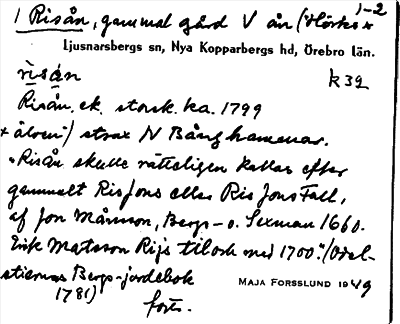 1-2
1 Risån, gammal gård V ån (Hörks x
Ljusnarsbergs sn, Nya Kopparbergs hd, Örebro län.
rìsán k 39
Risån. ek. stork. ka. 1799
x älven) strax N Bånghammar.
"Risån skulle rätteligen kallas efter
gammalt Risjons eller Ris Jons Fall,
af Jon Månsson, Bergs- o. Sexman 1660.
Erik Matsson Rijs tilock med 1700." (Odel-
stiernas Bergs-jordebok
MAJA FORSSLUND 1949
1781)
forts.